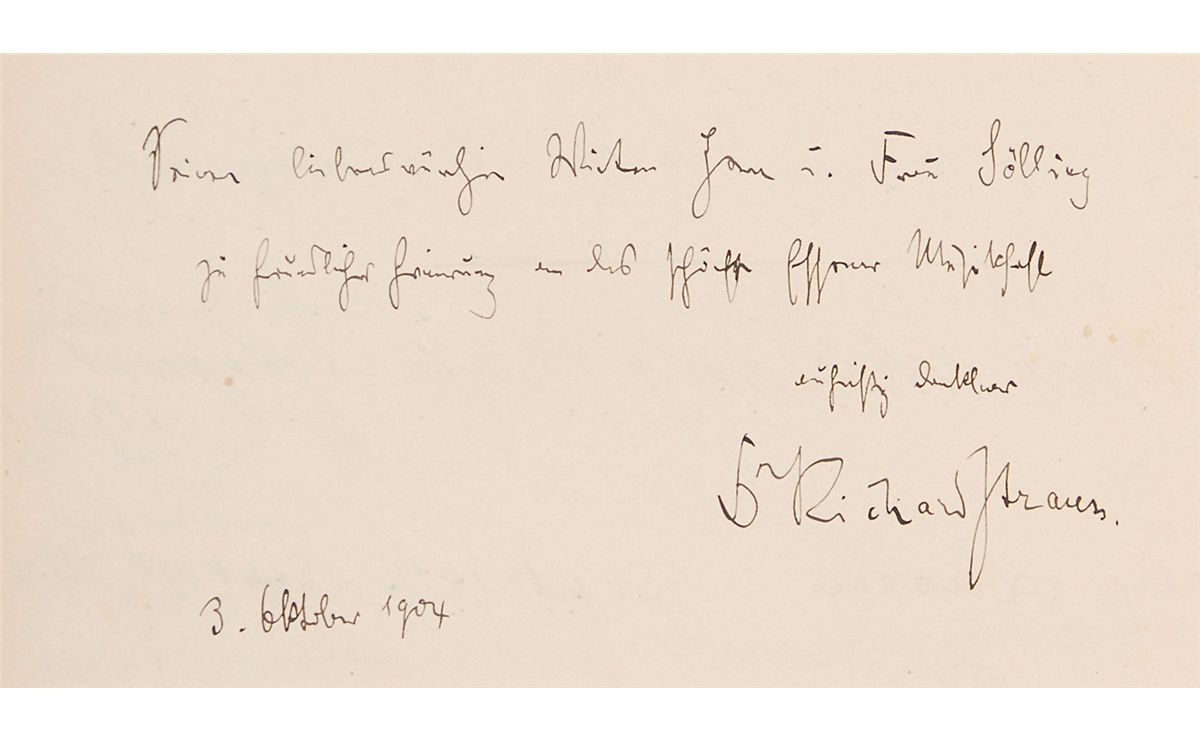 Seinen liebenswürdigen Wirten Herrn u. Frau Sölling
zu freundlicher Erinnerung an das schöne Essener Musikfest
aufrichtig dankbar
Dr Richard Strauss.
3. Oktober 1904